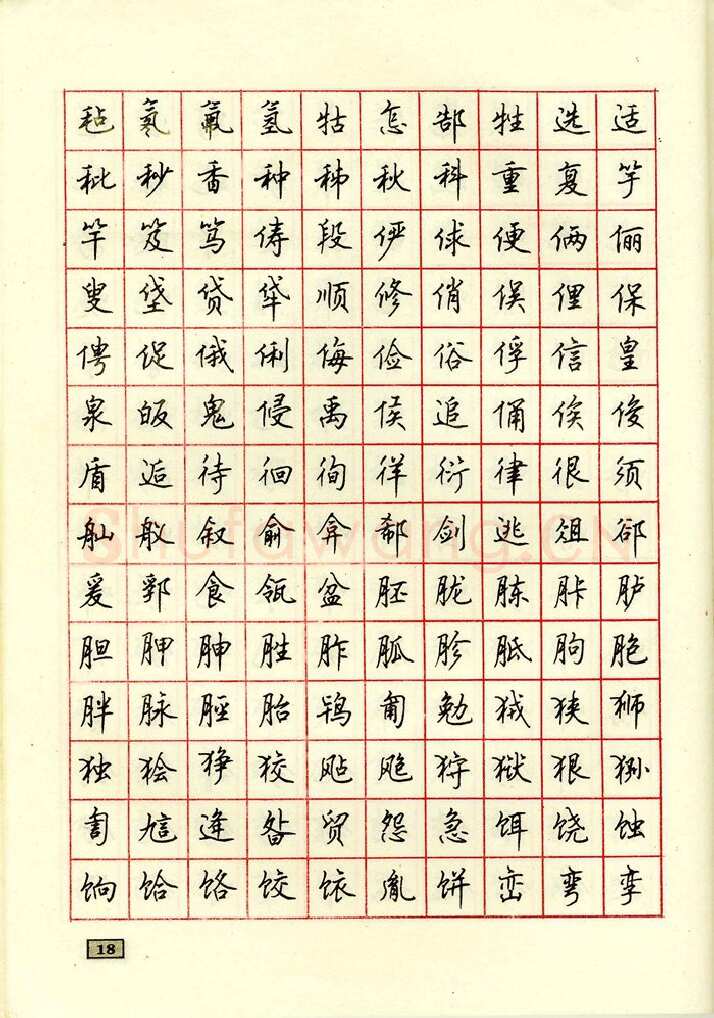 毡氡氟氢牯怎郜牲选适
秕秒香种秭秋科重复竽
竿笈笃俦段俨俅便俩俪
叟垡贷牮顺修俏俣俚保
俜促俄俐侮俭俗俘信皇
泉皈鬼侵禹侯追俑俟俊
盾逅待徊徇徉衍律很须
舢舣叙俞弇郗剑逃俎郤
爰郛食瓴盆胚胧胨胩胪
胆胛胂胜胙胍胗胝朐胞
胖脉胫胎鸨匍勉狨狭狮
独狯狰狡飐飑狩狱狠狲
訇訄逄昝贸怨急饵饶蚀
饷饸饹饺饻胤饼峦弯孪
18
Shufawang.CN